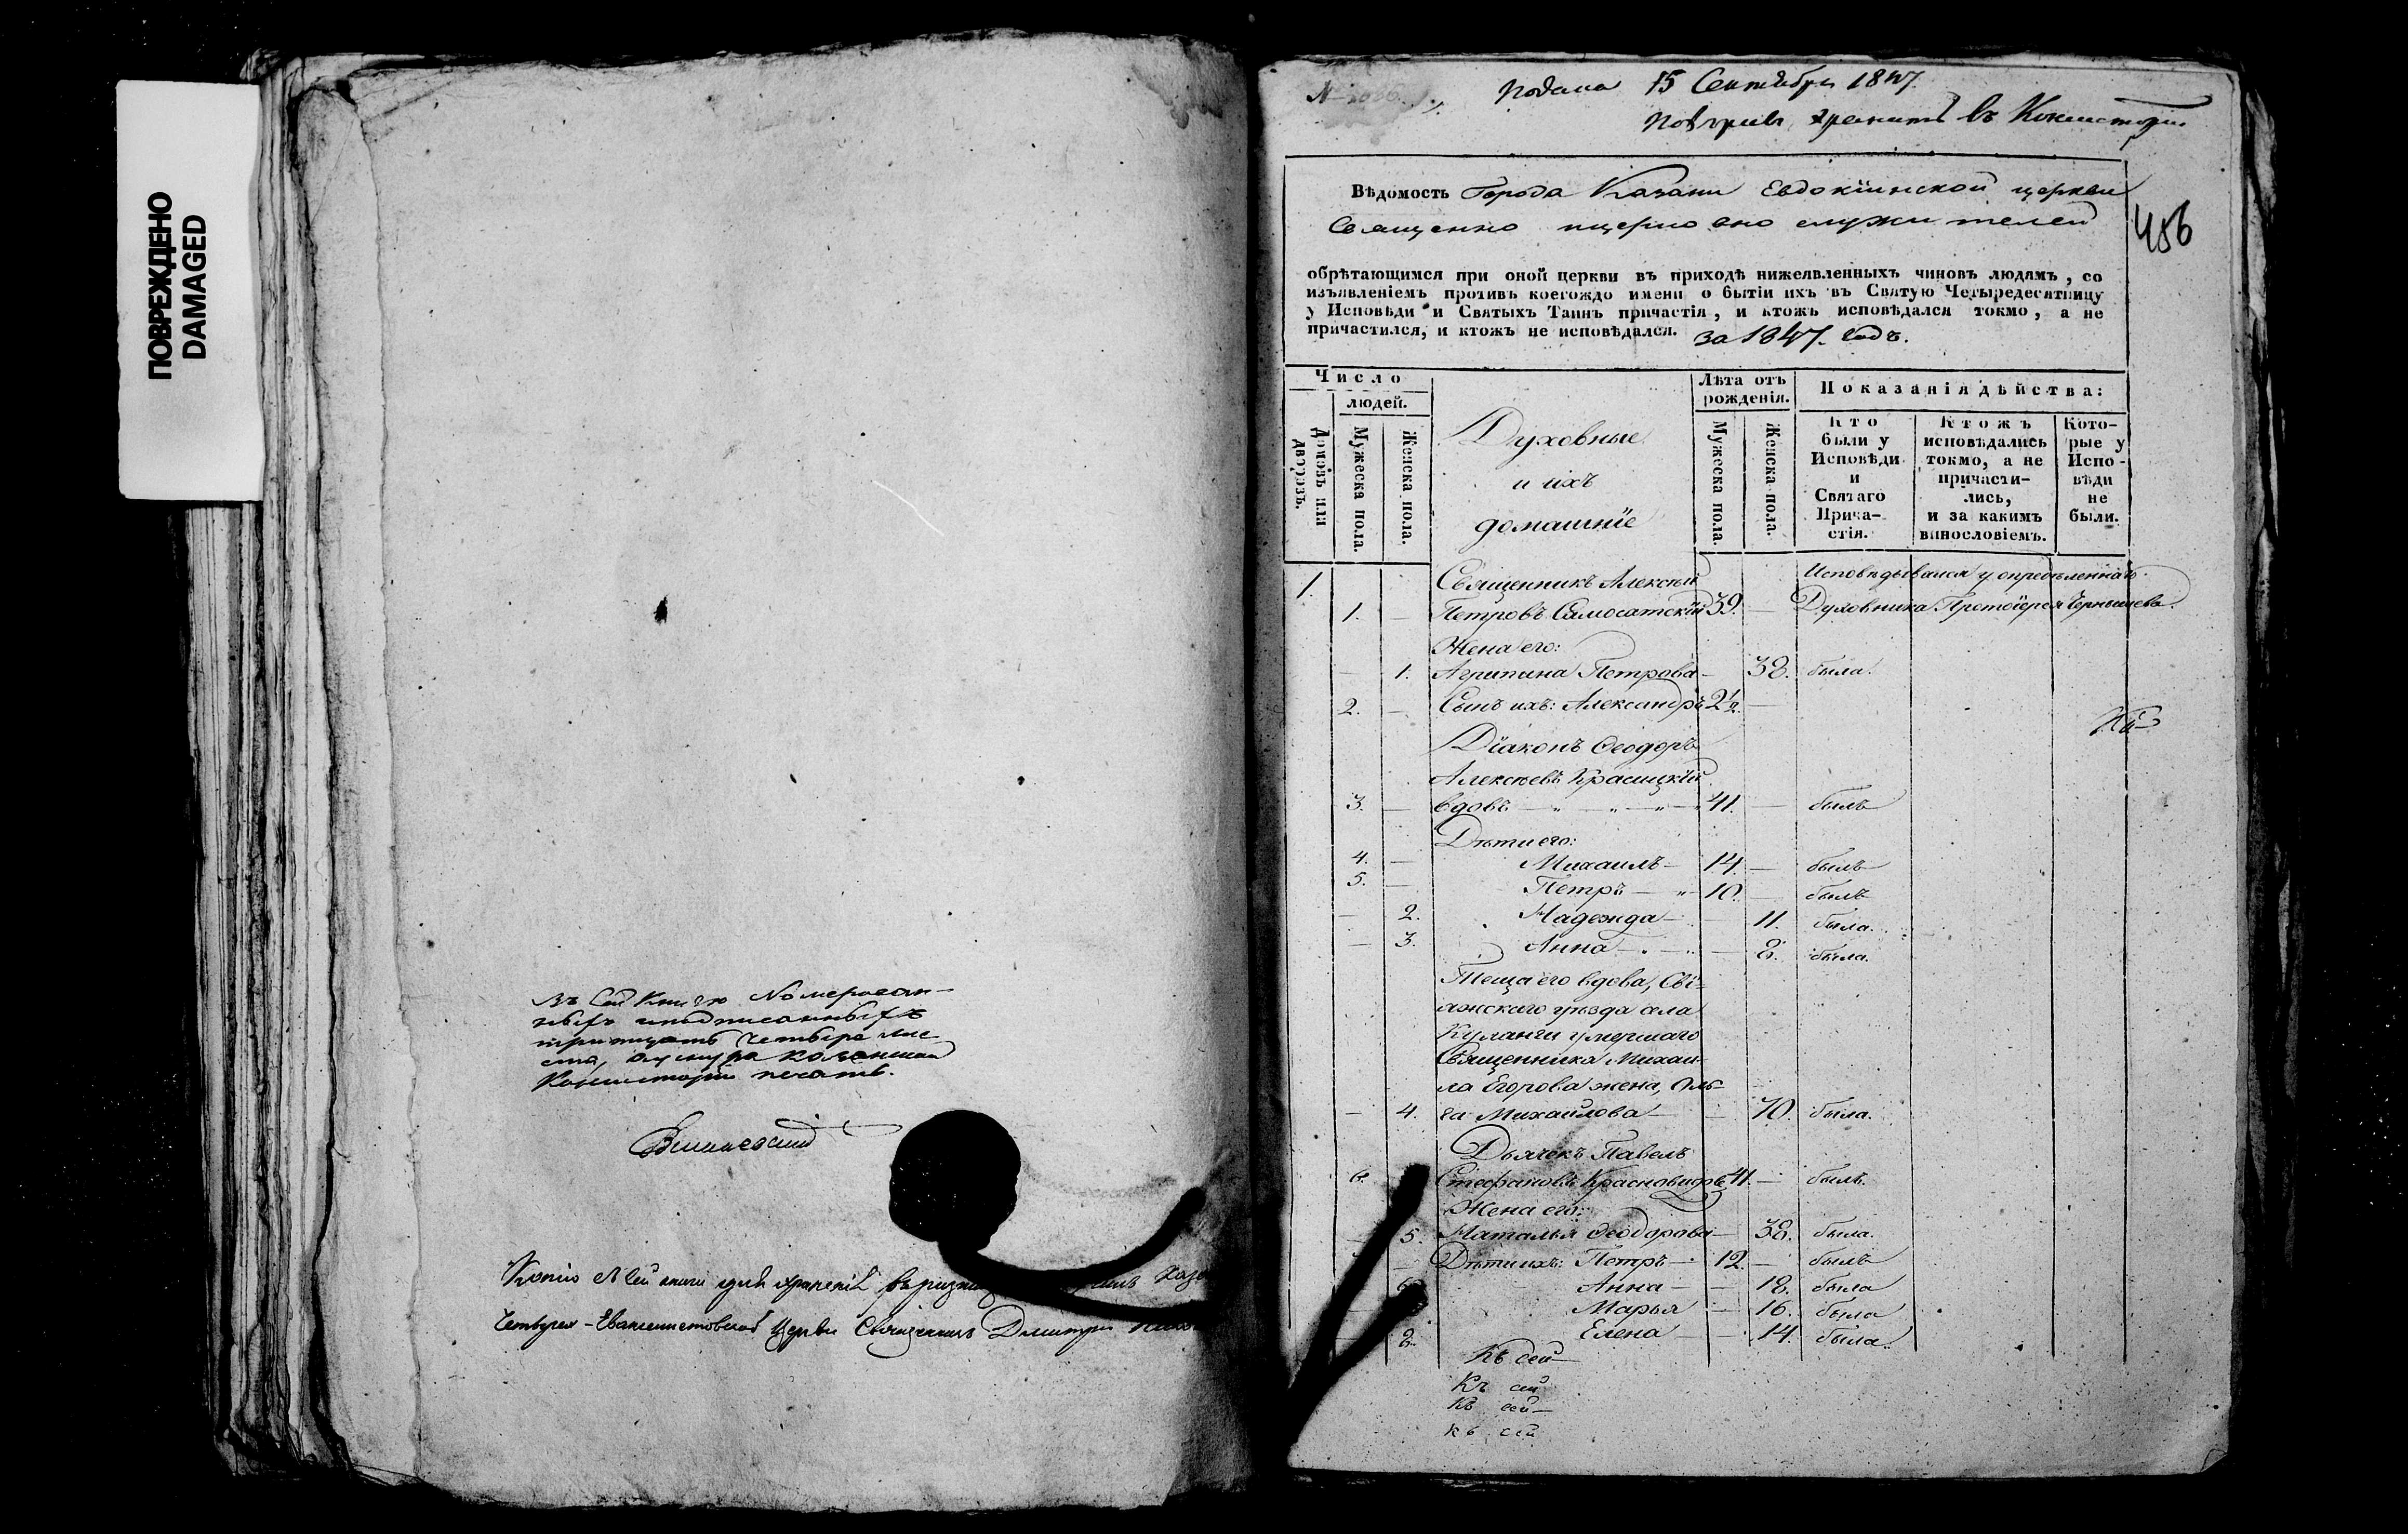 ПОВРЕЖДЕНО
DAMAGED
Въ сей книгѣ номерован-
ныхъ и подписанныхъ
тритцать четыре лис-
та,
Консисторіи печать.
Копію съ сей книги для храненія въ ризниц
Четырех-Евангелистовской Церкви Священникъ Димитрій
№
Подана 15 Сентября 1847.
хранить въ Консисторіи
456
Вѣдомость Города Казани Евдокіинской церкви
Священно и церковно служителей
обрѣтающимся при оной церкви въ приходѣ нижеявленныхъ чиновъ людямъ, со
изъявленіемъ противъ коегождо имени о бытіи ихъ въ Святую Четыредесятницу
у Исповѣди и Святыхъ Таинъ причастія, и ктожъ исповѣдался токмо, а не
причастился, и ктожъ не исповѣдался. за 1847. годъ.
Число
людей.
Домовъ или дворовъ.
Мужеска пола.
Женска пола.
Духовные
и ихъ
домашніе
Лѣта отъ
рожденія.
Мужеска пола.
Женска пола.
Показанія дѣйства:
Кто
были у
Исповѣди
и
Святаго
Прича-
стія.
Ктожъ
исповѣдались
токмо, а не
причасти-
лись,
и за какимъ
винословіемъ.
Кото-
рые у
Испо-
вѣди
не
были.
1. Священникъ Алексѣй Исповѣдывался у опредѣленнаго
1. — Петровъ Самосатскій 39. — Духовника Протоіерея Чернышева.
Жена его:
— 1. Агрипина Петрова — 38. была.
2. — Сынъ ихъ: Александръ 2 1/2. —
Діаконъ Ѳеодоръ
Алексѣевъ Красицкій
3. — вдовъ 41. — былъ
Дѣти его:
4. — Михаилъ — 14. — былъ
5. — Петръ — 10. — былъ
— 2. Надежда — 11. была.
— 3. Анна — 8. была.
Теща его вдова, Сві-
яжскаго уѣзда села
Куланги умершаго
Священника Михаи-
ла Егорова жена, Оль-
— 4. га Михайлова — 70. была.
Дьячекъ Павелъ
6. Стефановъ Красновидовъ 41. — былъ.
Жена его:
5. Наталья Ѳеодорова — 38. была.
Дѣти ихъ: Петръ — 12. — былъ
6. Анна — 18. была
Марья — 16. была
8. Елена — 14. была.
Къ сей
Къ сей
Къ сей
Къ сей